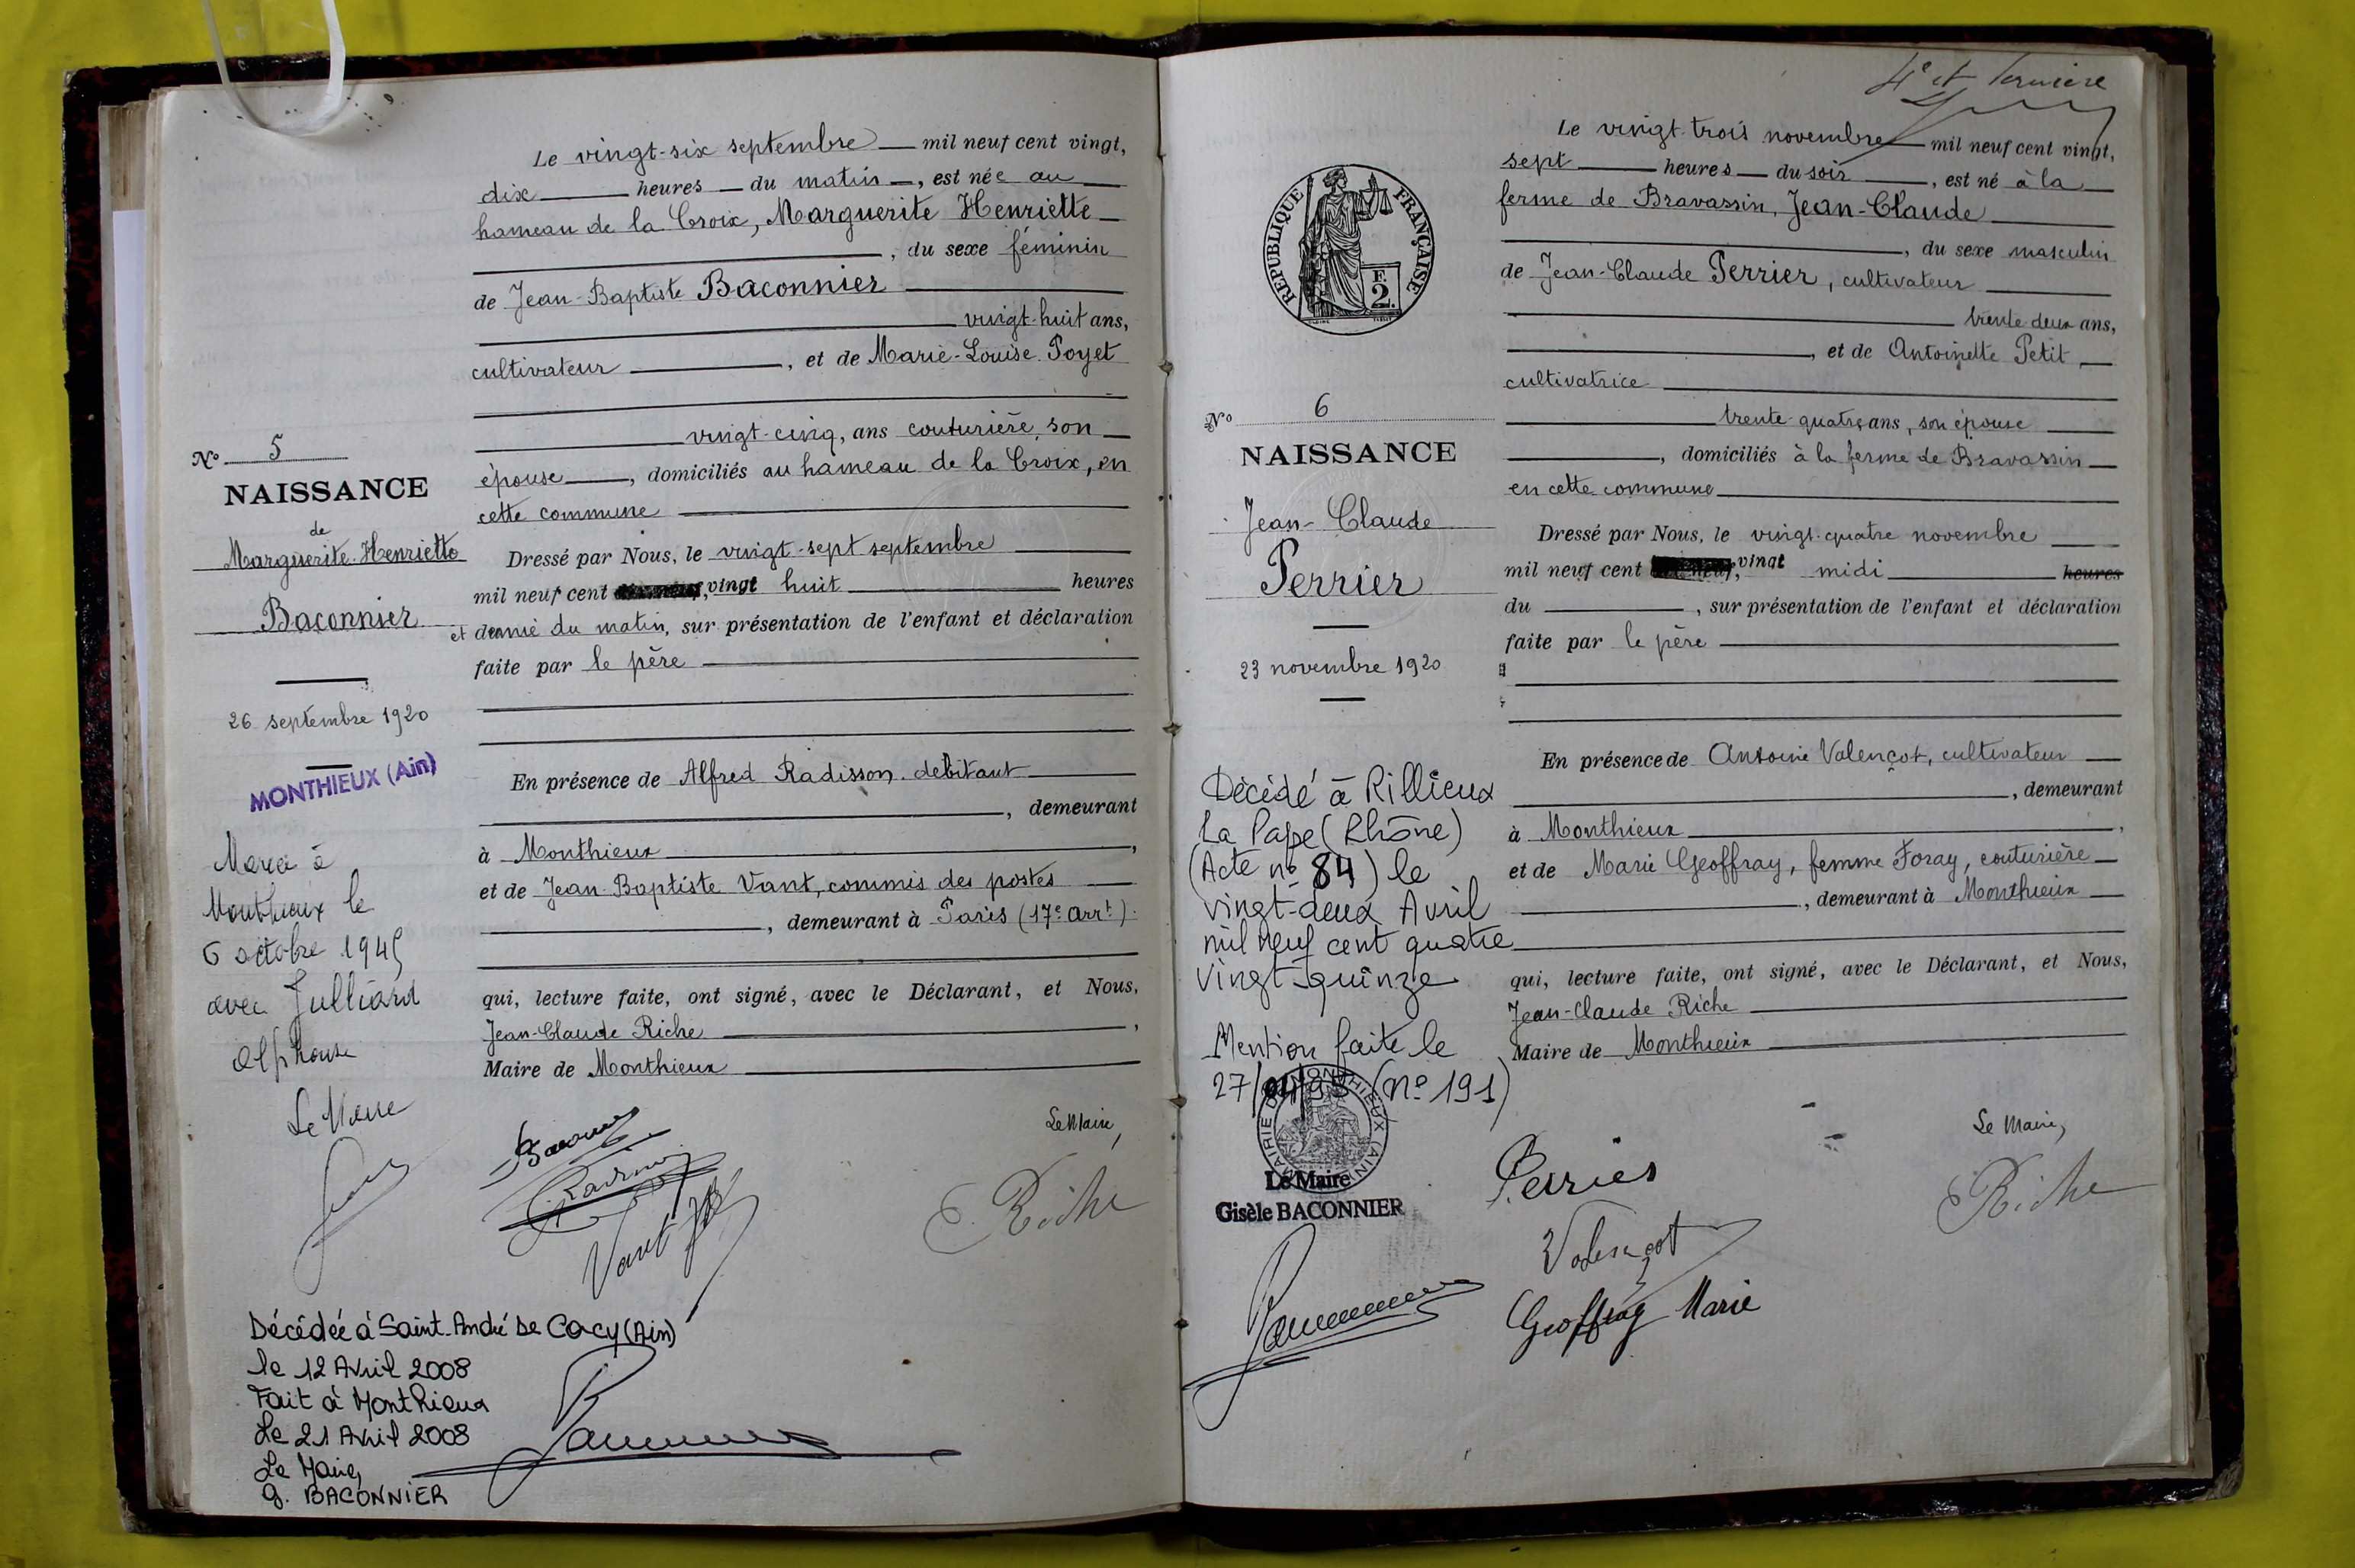 Le vingt-six septembre mil neuf cent vingt,
dix heures du matin, est née au
hameau de la Croix, Marguerite Henriette
, du sexe féminin
de Jean-Baptiste Baconnier
vingt-huit ans,
cultivateur, et de Marie-Louise Poyet
vingt-cinq, ans couturière, son
épouse, domiciliés au hameau de la Croix, en
cette commune
Dressé par Nous, le vingt-sept septembre
mil neuf cent vingt huit heures
et demie du matin, sur présentation de l'enfant et déclaration
faite par le père
En présence de Alfred Radisson, debitant
, demeurant
à Monthieux,
et de Jean Baptiste Vant, commis des postes
, demeurant à Paris (17e arrt)
qui, lecture faite, ont signé, avec le Déclarant, et Nous,
Jean-Claude Riche,
Maire de Monthieux
Le Maire,
Vant JB
Riche
No 5
NAISSANCE
de
Marguerite-Henriette
Baconnier
26 septembre 1920
MONTHIEUX (Ain)
Marié à
Monthieux le
6 octobre 1945
avec Julliard
Alphonse
Le Maire
Décédée à Saint-André De Corcy (Ain)
le 12 Avril 2008
Fait à Monthieux
Le 21 Avril 2008
Le Maire,
G. BACONNIER
4e et dernière
Le vingt-trois novembre mil neuf cent vingt,
sept heures du soir, est né à la
ferme de Bravassin, Jean-Claude
, du sexe masculin
de Jean-Claude Perrier, cultivateur
trente-deux ans,
, et de Antoinette Petit,
cultivatrice
trente-quatre ans, son épouse
, domiciliés à la ferme de Bravassin
en cette commune
Dressé par Nous, le vingt-quatre novembre
mil neuf cent vingt midi heures
du , sur présentation de l'enfant et déclaration
faite par le père
En présence de Antoine Valençot, cultivateur
, demeurant
à Monthieux,
et de Marie Geoffray, femme Foray, couturière
, demeurant à Monthieux
qui, lecture faite, ont signé, avec le Déclarant, et Nous,
Jean-Claude Riche
Maire de Monthieux
Le Maire,
Perrier
Valençot
Geoffray Marie
Riche
RÉPUBLIQUE FRANÇAISE
F.
2.
No 6
NAISSANCE
Jean-Claude
Perrier
23 novembre 1920
Décédé à Rillieux
La Pape (Rhône)
(Acte no 84) le
vingt-deux Avril
mil neuf cent quatre
vingt-quinze
Mention faite le
27/04/95 (no 191)
MAIRIE DE MONTHIEUX (AIN)
Le Maire
Gisèle BACONNIER